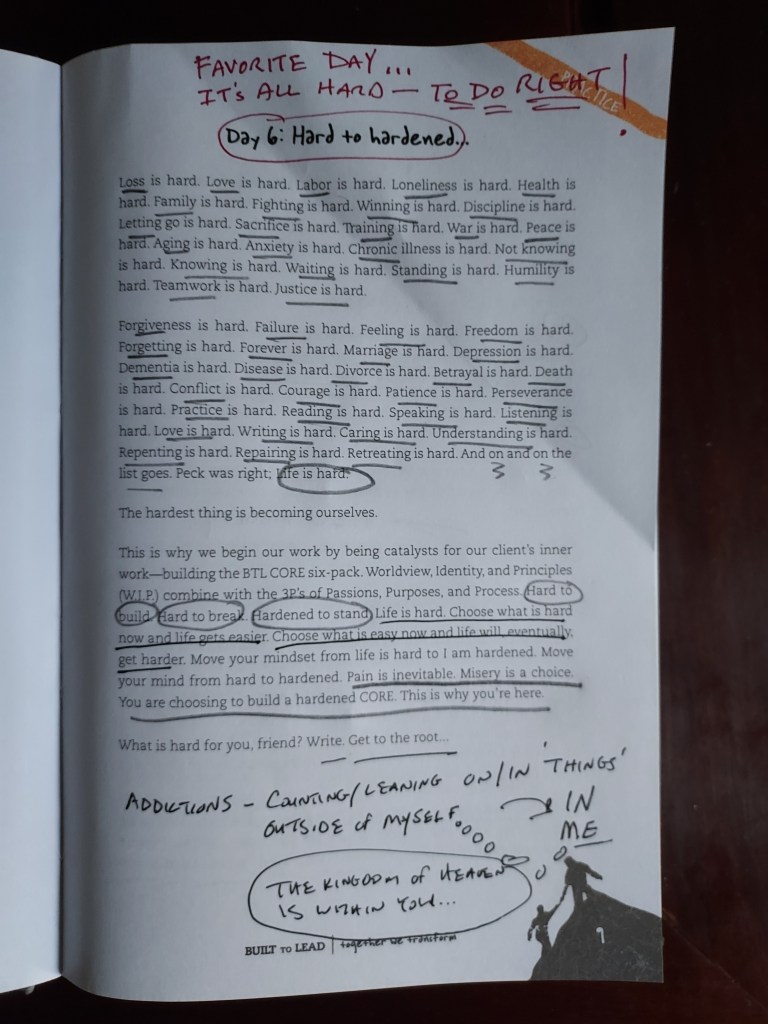 FAVORITE DAY...
IT'S ALL HARD — TO DO RIGHT!
PRACTICE
Day 6: Hard to hardened..
Loss is hard. Love is hard. Labor is hard. Loneliness is hard. Health is
hard. Family is hard. Fighting is hard. Winning is hard. Discipline is hard.
Letting go is hard. Sacrifice is hard. Training is hard. War is hard. Peace is
hard. Aging is hard. Anxiety is hard. Chronic illness is hard. Not knowing
is hard. Knowing is hard. Waiting is hard. Standing is hard. Humility is
hard. Teamwork is hard. Justice is hard.
Forgiveness is hard. Failure is hard. Feeling is hard. Freedom is hard.
Forgetting is hard. Forever is hard. Marriage is hard. Depression is hard.
Dementia is hard. Disease is hard. Divorce is hard. Betrayal is hard. Death
is hard. Conflict is hard. Courage is hard. Patience is hard. Perseverance
is hard. Practice is hard. Reading is hard. Speaking is hard. Listening is
hard. Love is hard. Writing is hard. Caring is hard. Understanding is hard.
Repenting is hard. Repairing is hard. Retreating is hard. And on and on the
list goes. Peck was right; Life is hard.
The hardest thing is becoming ourselves.
This is why we begin our work by being catalysts for our client's inner
work—building the BTL CORE six-pack. Worldview, Identity, and Principles
(W.I.P.) combine with the 3P's of Passions, Purposes, and Process. Hard to
build. Hard to break. Hardened to stand. Life is hard. Choose what is hard
now and life gets easier. Choose what is easy now and life will, eventually,
get harder. Move your mindset from life is hard to I am hardened. Move
your mind from hard to hardened. Pain is inevitable. Misery is a choice.
You are choosing to build a hardened CORE. This is why you're here.
What is hard for you, friend? Write. Get to the root...
ADDICTIONS - COUNTING/LEANING ON/IN 'THINGS'
OUTSIDE OF MYSELF
IN
ME
THE KINGDOM OF HEAVEN
IS WITHIN YOU...
BUILT TO LEAD | together we transform
1